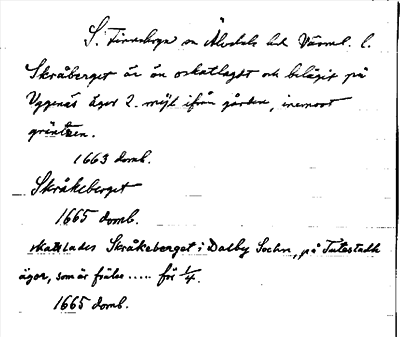 S. Finnskoga sn Älvdals hd Värml. l.
Skråberget är än oskatlagdt och belägit på
Uggenäs äger 2. mijl ifrån gården, inemoot
gräntzen.
1663 domb.
Skråkeberget
1665 domb.
skattlades Skråkeberget i Dalby Sochn, på Tutestadh
äger, som är frälse ..... för 1/4.
1665 domb.